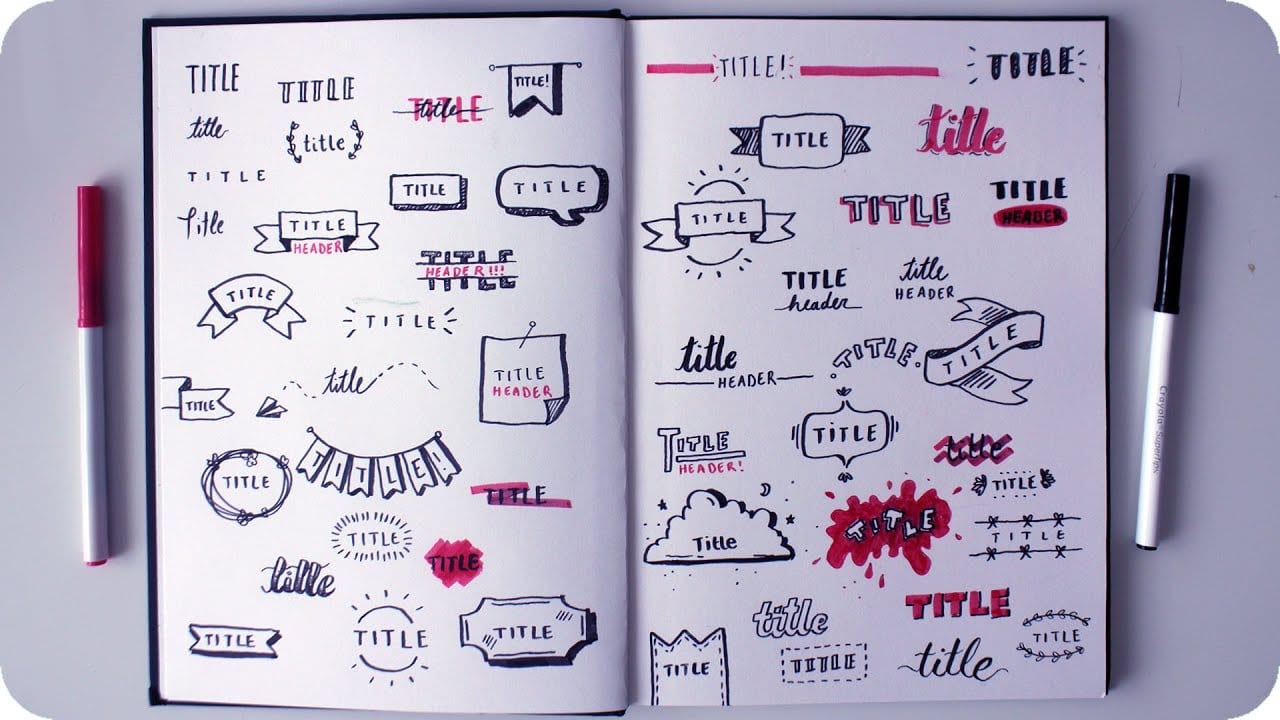 TITLE
TITLE
title
TITLE
TITLE!
title
title
TITLE
TITLE
TITLE
Title
TITLE
HEADER
TITLE
HEADER!!!
TITLE
TITLE
TITLE
HEADER
title
TITLE
TITLE!
TITLE
TITLE
TITLE
TITLE
title
TITLE
TITLE
TITLE
TITLE!
TITLE
TITLE
title
TITLE
TITLE
TITLE
HEADER
TITLE
header
title
HEADER
title
HEADER
TITLE
TITLE
TITLE
HEADER!
TiTLE
title
TITLE
Title
TITLE
TITLE
title
TITLE
TITLE
TITLE
TITLE
title
Crayola SuperTips